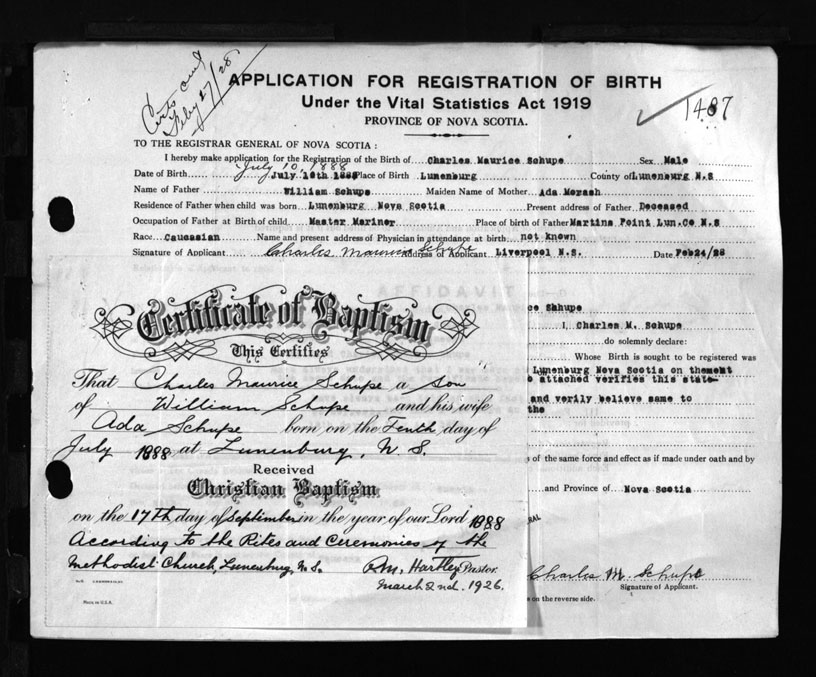 Certs out
Feby 27/28
APPLICATION FOR REGISTRATION OF BIRTH
Under the Vital Statistics Act 1919
PROVINCE OF NOVA SCOTIA.
1487
TO THE REGISTRAR GENERAL OF NOVA SCOTIA:
I hereby make application for the Registration of the Birth of Charles Maurice Schupe Sex Male
July 10, 1888
Date of Birth July Place of Birth Lunenburg County of Lunenburg N.S
Name of Father William Schupe Maiden Name of Mother Ada Merash
Residence of Father when child was born Lunenburg Nova Scotia Present address of Father Deceased
Occupation of Father at Birth of child Master Mariner Place of birth of Father Martins Point Lun.Co N.S
Race Caucasian Name and present address of Physician in attendance at birth not known
Signature of Applicant Charles Maurice Schupe Address of Applicant Liverpool N.S. Date Feb24/28
AFFIDAVIT
Certificate of Baptism
This Certifies
That Charles Maurice Schupe a son
of William Schupe and his wife
Ada Schupe born on the Tenth day of
July 1888 at Lunenburg, N.S.
Received
Christian Baptism
on the 17th day of September in the year of our Lord 1888
According to the Rites and Ceremonies of the
Methodist Church, Lunenburg, N.S. Hartley Pastor.
March 2nd. 1926.
MADE IN U.S.A.
ce Shhupe
I, Charles M. Schupe
do solemnly declare:
Whose Birth is sought to be registered was
Lunenburg Nova Scotia on the
attached verifies this state-
and verily believe same to
the
of the same force and effect as if made under oath and by
and Province of Nova Scotia
Charles M Schupe
Signature of Applicant.
on the reverse side.